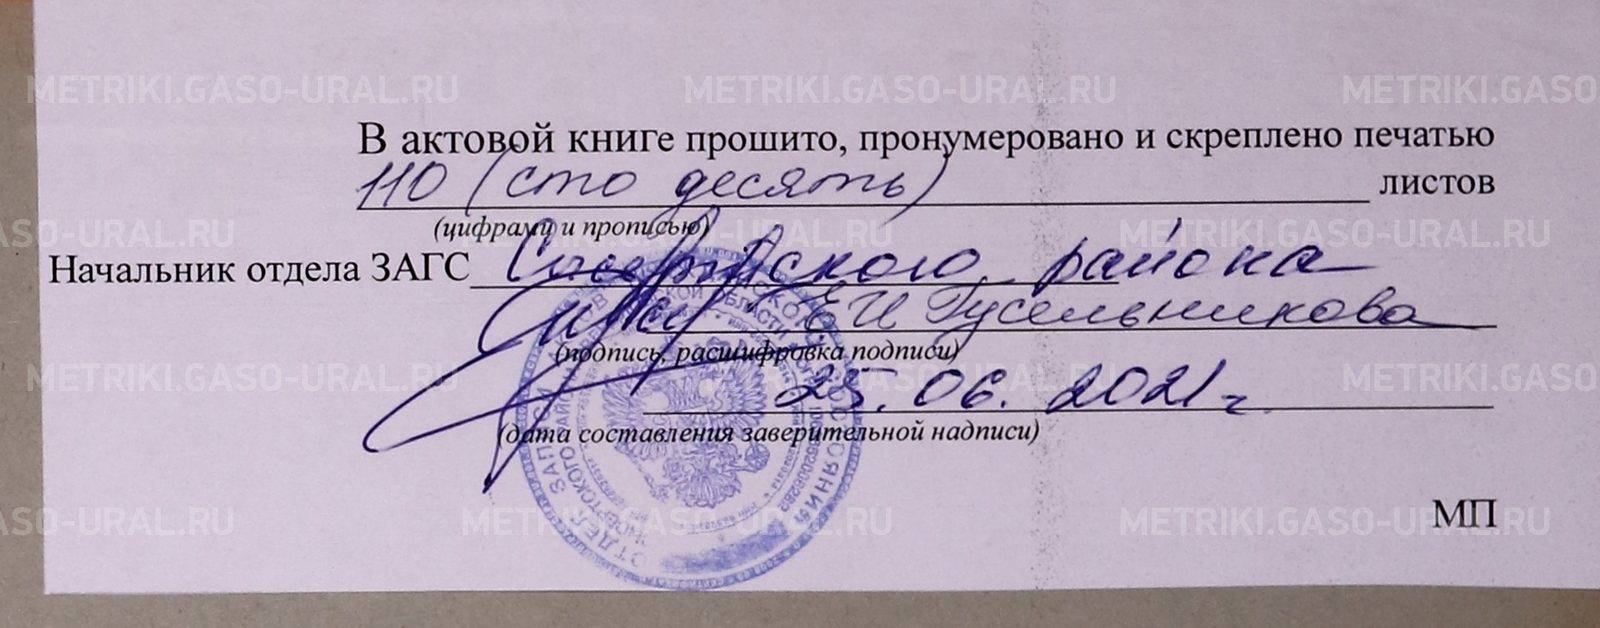 METRIKI.GASO-URAL.RU METRIKI.GASO-URAL.RU METRIKI.GASO
В актовой книге прошито, пронумеровано и скреплено печатью
110 (сто десять) листов
(цифрами и прописью)
ASO-URAL.RU METRIKI.GASO-URAL.RU METRIKI.GASO-URAL.RU
Начальник отдела ЗАГС Сысертского района
Е И Гусельникова
(подпись, расшифровка подписи)
METRIKI.GASO-URAL.RU METRIKI.GASO-URAL.RU METRIKI.GASO
25.06.2021 г.
(дата составления заверительной надписи)
МП
ASO-URAL.RU METRIKI.GASO-URAL.RU METRIKI.GASO-URAL.RU
ОТДЕЛ ЗАПИСИ АКТОВ СОСТОЯНИЯ